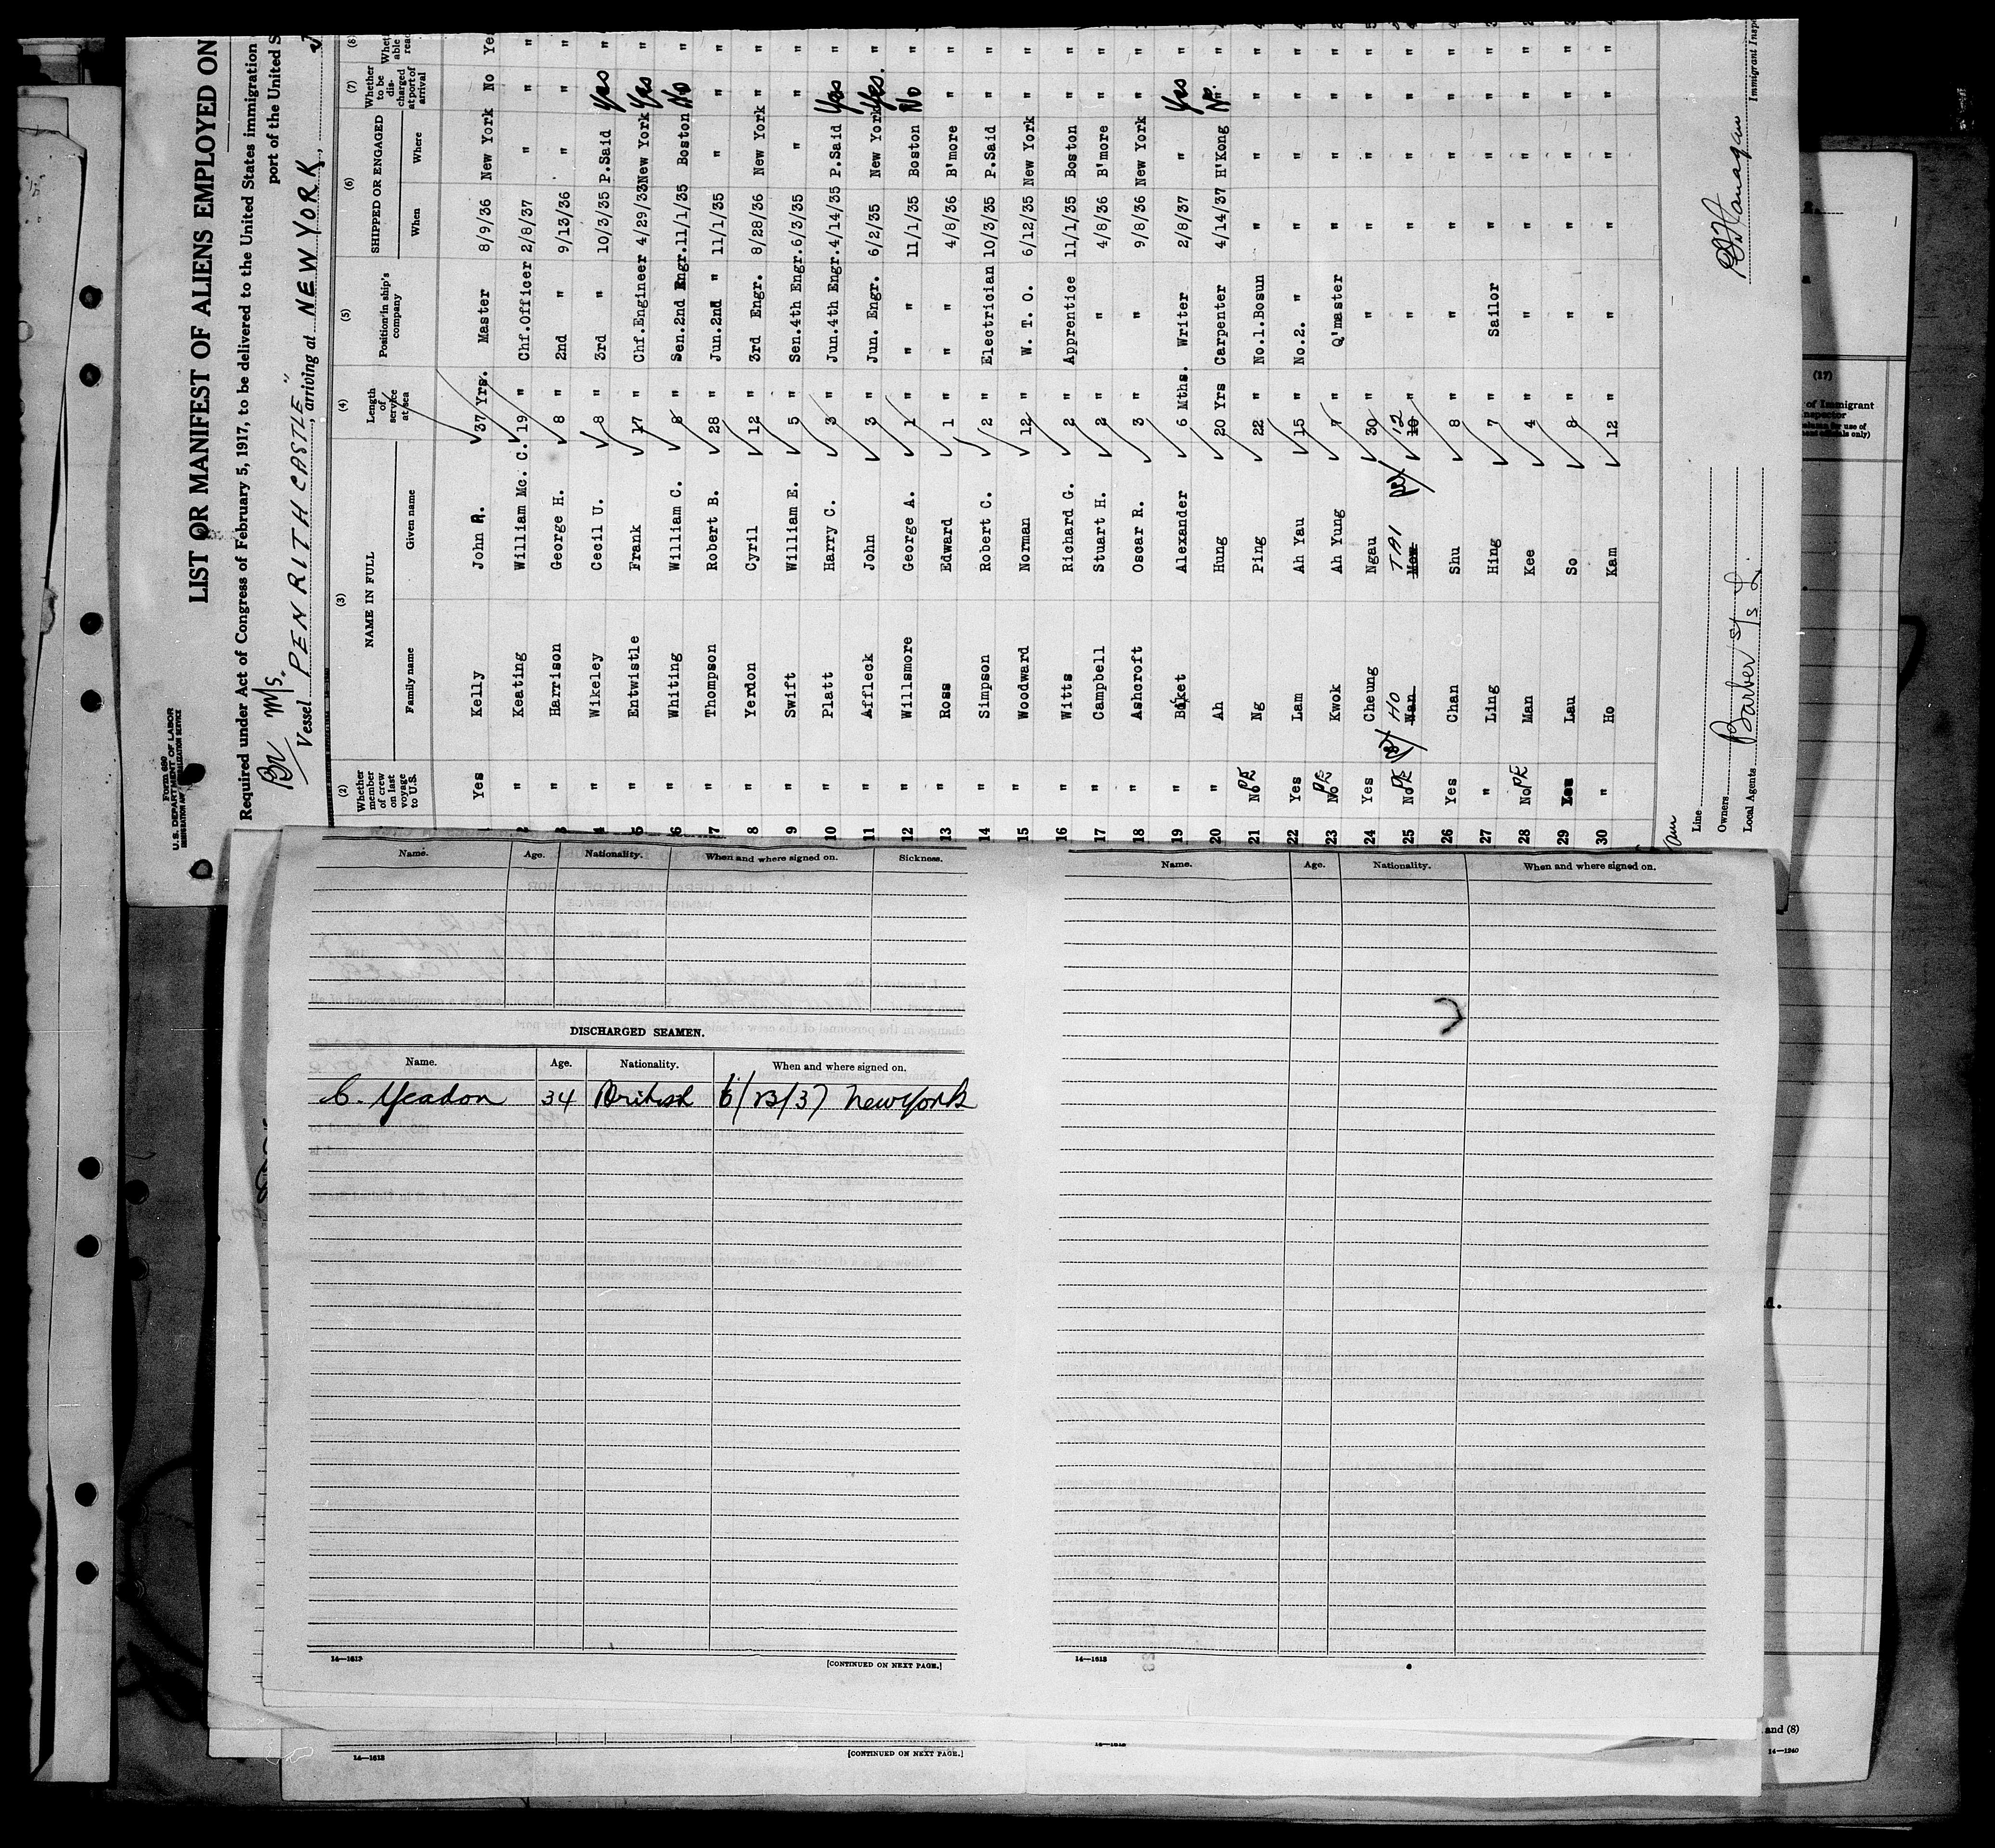 Form 680
U.S. DEPARTMENT OF LABOR
LIST OR MANIFEST OF ALIENS EMPLOYED ON
Required under Act of Congress of February 5, 1917, to be delivered to the United States immigration
port of the United S
Br M/S.
Vessel PENRITH CASTLE", arriving at NEW YORK,
(2) (3) (4) (5) (6) (7) (8)
Whether member of crew on last voyage to U.S. NAME IN FULL Family name Given name Length of service at sea Position in ship's company SHIPPED OR ENGAGED When Where Whether to be discharged at port of arrival
Yes Kelly John R. 37 Yrs. Master 8/9/36 New York No Yes
2 " Keating William Mc. C. 19 " Chf.Officer 2/8/37 " " "
3 " Harrison George H. 8 " 2nd " 9/13/36 " " "
4 " Wikeley Cecil U. 8 " 3rd " 10/3/35 P.Said Yes "
5 " Entwistle Frank 17 " Chf.Engineer 4/29/33 New York Yes "
6 " Whiting William C. 8 " Sen.2nd Engr. 11/1/35 Boston No "
7 " Thompson Robert B. 28 " Jun.2nd " 11/1/35 " " "
8 " Yerdon Cyril 12 " 3rd Engr. 8/28/36 New York " "
9 " Swift William E. 5 " Sen.4th Engr. 6/3/35 " " "
10 " Platt Harry C. 3 " Jun.4th Engr. 4/14/35 P.Said Yes "
11 " Affleck John 3 " Jun. Engr. 6/2/35 New York Yes. "
12 " Willsmore George A. 1 " " " 11/1/35 Boston No "
13 " Ross Edward 1 " " " 4/8/36 B'more " "
14 " Simpson Robert C. 2 " Electrician 10/3/35 P.Said " "
15 " Woodward Norman 12 " W. T. O. 6/12/35 New York " "
16 " Witts Richard G. 2 " Apprentice 11/1/35 Boston " "
17 " Campbell Stuart H. 2 " " 4/8/36 B'more " "
18 " Ashcroft Oscar R. 3 " " 9/8/36 New York " "
19 " Alexander 6 Mths. Writer 2/8/37 " Yes "
20 " Ah Hung 20 Yrs Carpenter 4/14/37 H'Kong No. "
21 No PE Ng Ping 22 " No.1.Bosun " " " "
22 Yes Lam Ah Yau 15 " No.2. " " " " "
23 No PE Kwok Ah Yung 7 " Q'master " " " "
24 Yes Cheung Ngau 30 " " " " " "
25 No PE HO Wan TAI Mow 12 10 " " " " " "
26 Yes Chan Shu 8 " " " " " "
27 " Ling Hing 7 " Sailor " " " "
28 No PE Man Kee 4 " " " " " "
29 Lau So 8 " " " " " "
30 " Ho Kam 12 " " " " " "
Line
Owners
Local Agents Barber S/S L.
Immigrant Inspe
(17)
of Immigrant
Inspector
Name. Age. Nationality. When and where signed on. Sickness.
DISCHARGED SEAMEN.
Name. Age. Nationality. When and where signed on.
C. Yeadon 34 British 6/23/37 New York
14—1613 [CONTINUED ON NEXT PAGE.]
Name. Age. Nationality. When and where signed on.
14—1613
14—1613 [CONTINUED ON NEXT PAGE.]
and (8)
14—1240